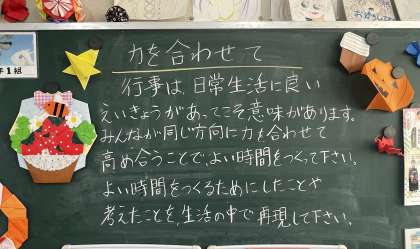 力を合わせて
行事は、日常生活に良い
えいきょうがあってこそ意味があります。
みんなが同じ方向に力を合わせて
高め合うことで、よい時間をつくって下さい。
よい時間をつくるためにしたことや
考えたことを、生活の中で再現して下さい。
年1組